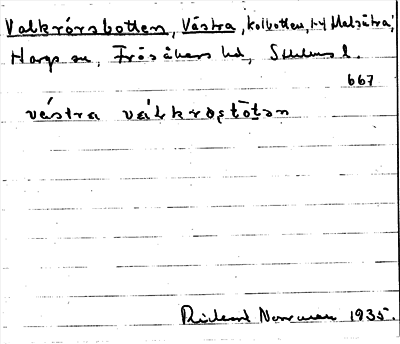 Valkrörsbotten, Västra, kolbotten, t-4 Malsätra,
Hargs sn, Frösåkers hd, Sthlms l.
667
västra válkrǫstòtǝn
Rickard Norrman 1935.